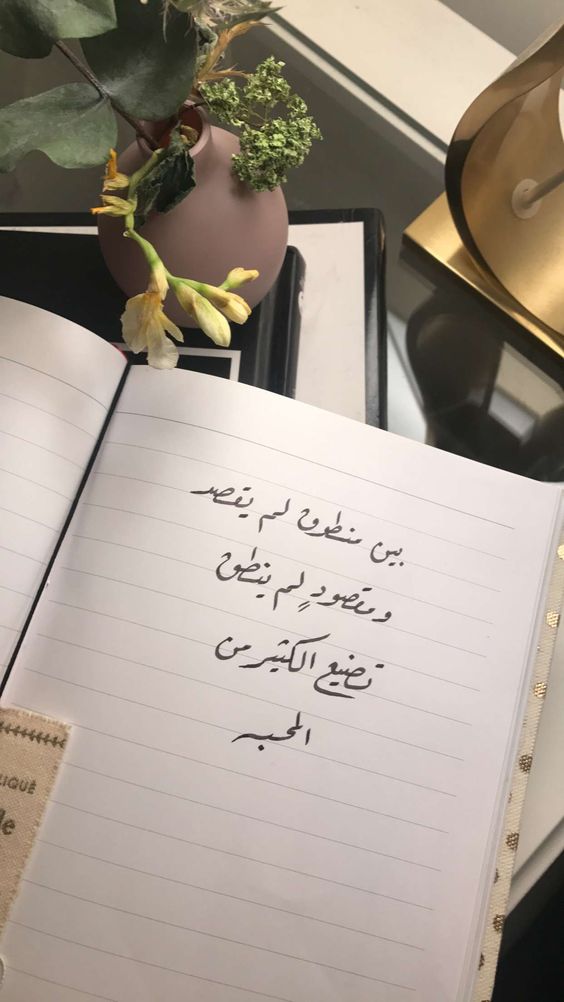 بين منطوق لم يقصد
ومقصودٍ لم ينطق
تضيع الكثير من
المحبه